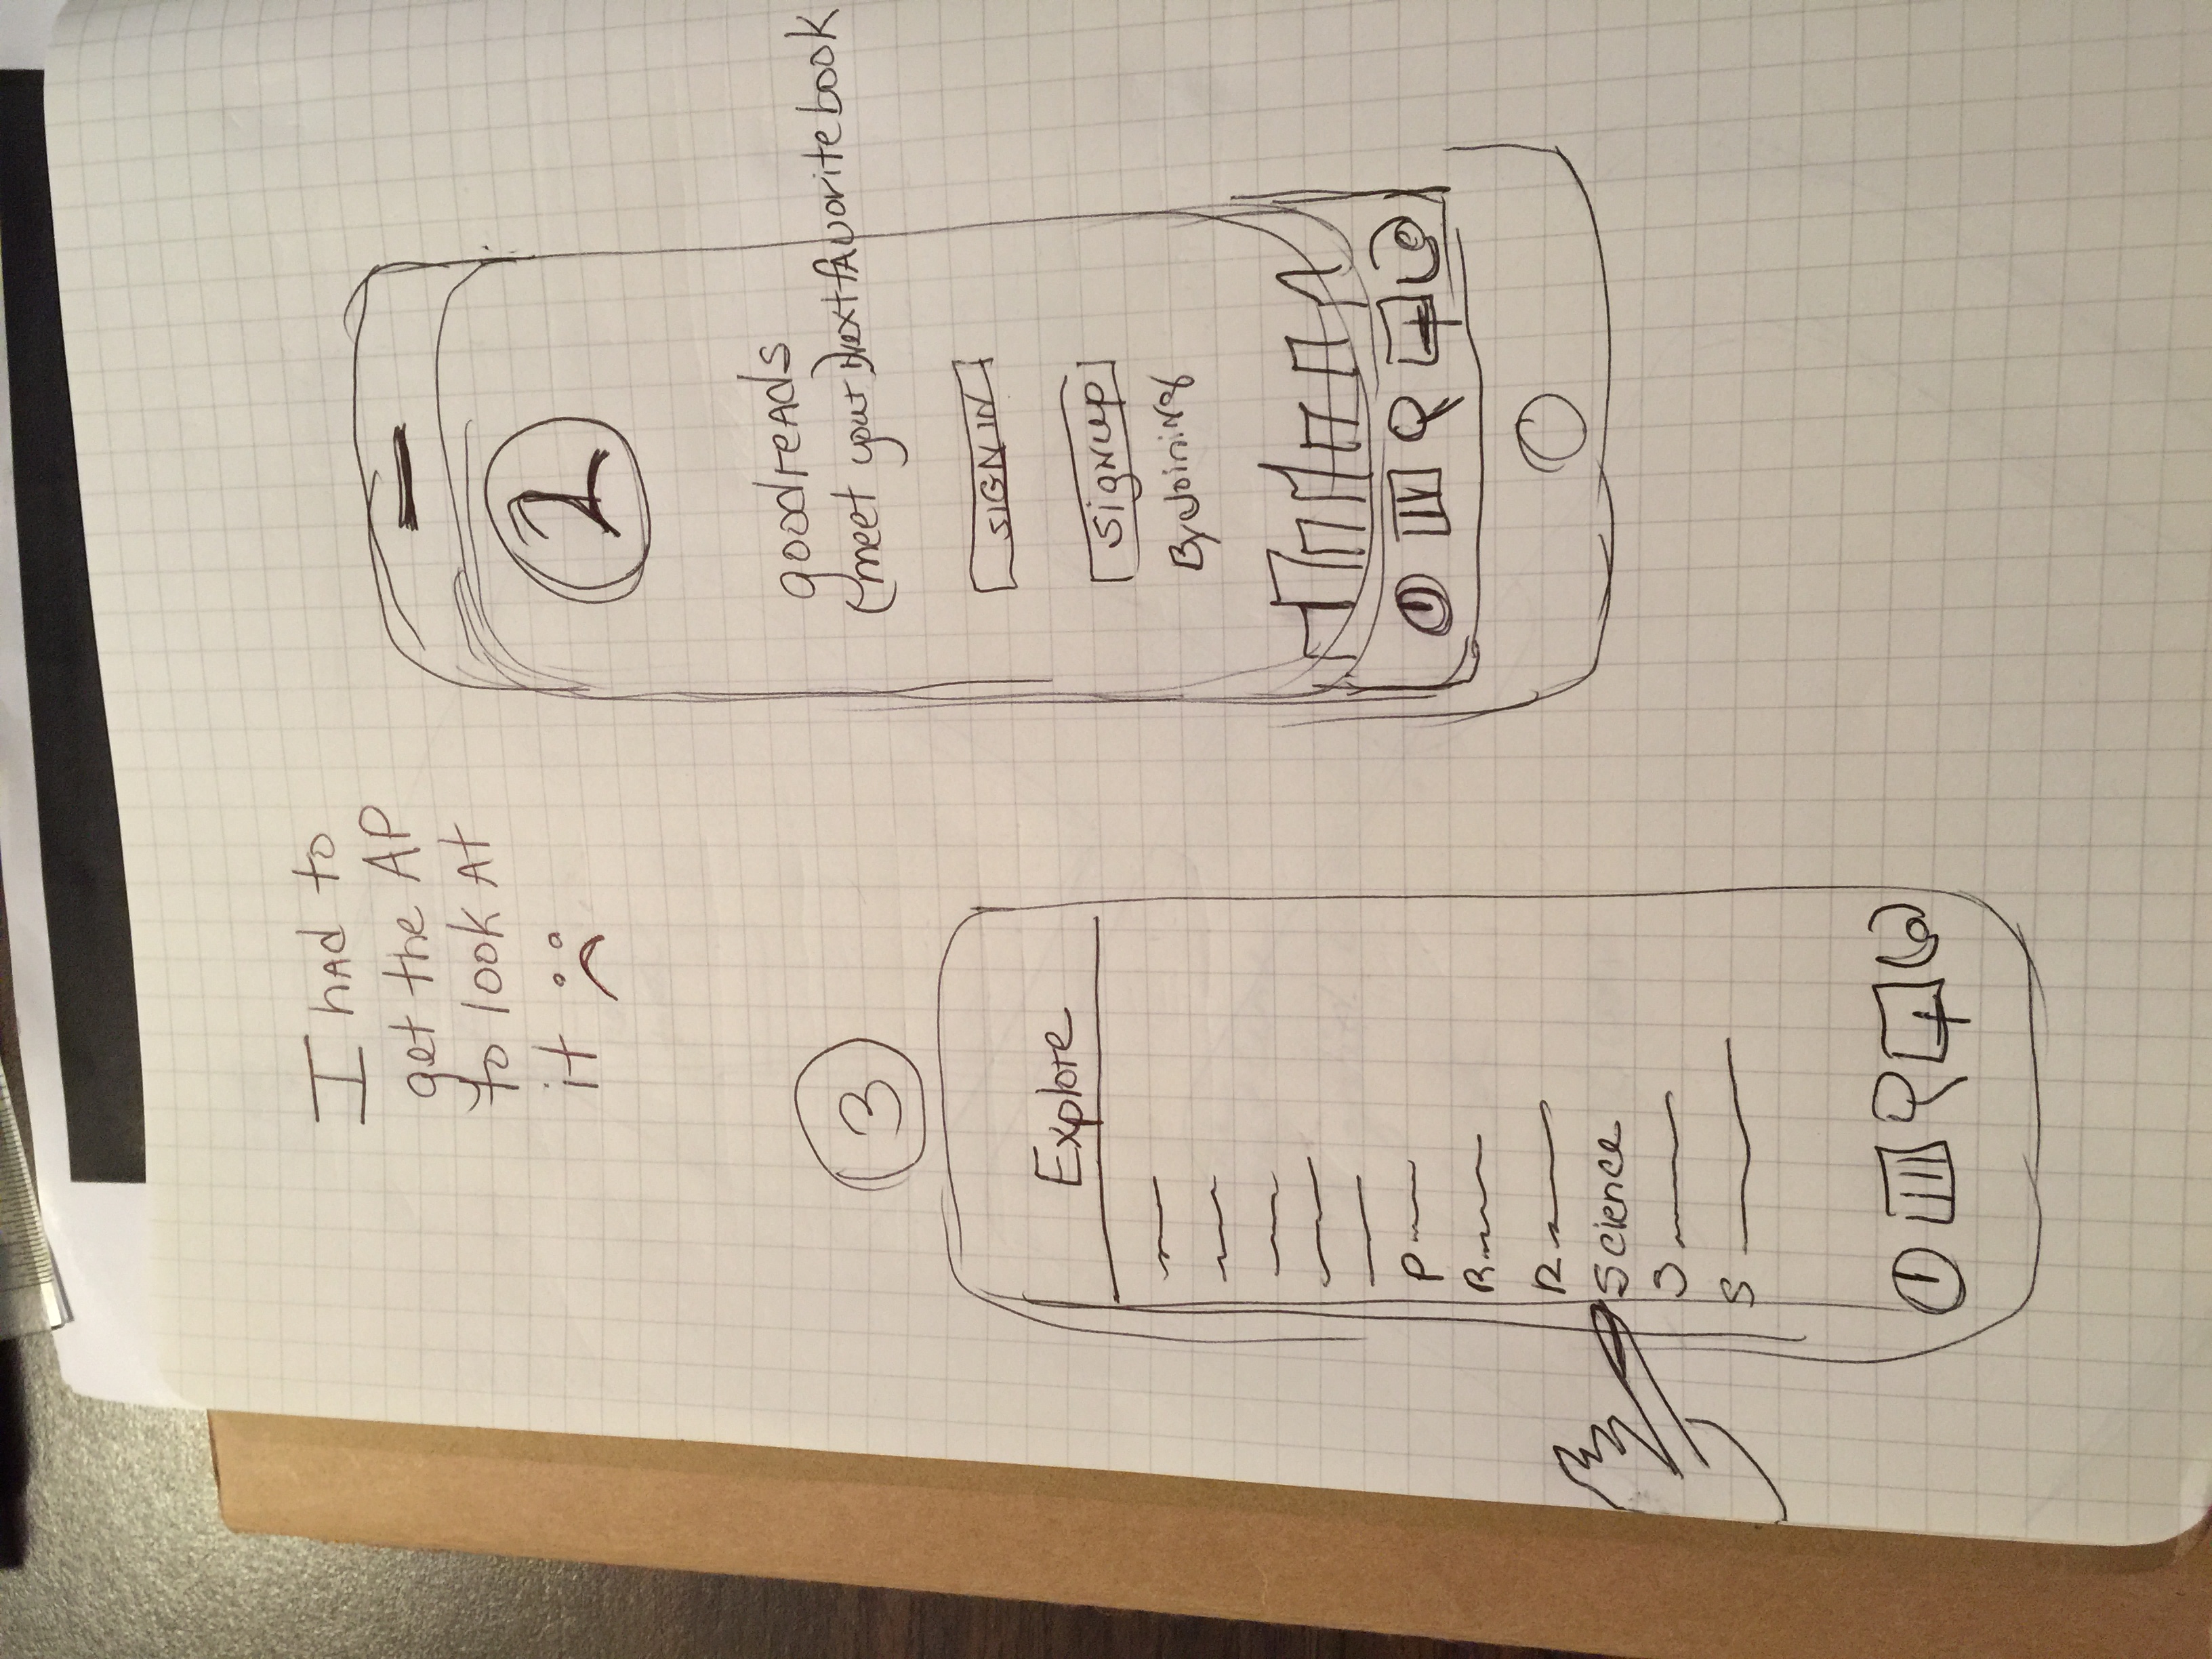 I had to
get the AP
to look At
it
2
goodreads
(meet your) Next favorite book
SIGN IN
Signup
By Joining
3
Explore
P
R
R
Science
S
S